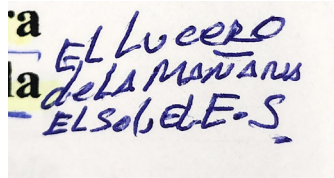 ra
EL Lucero
la
de LA MAÑANA
EL Sol, dE.S.